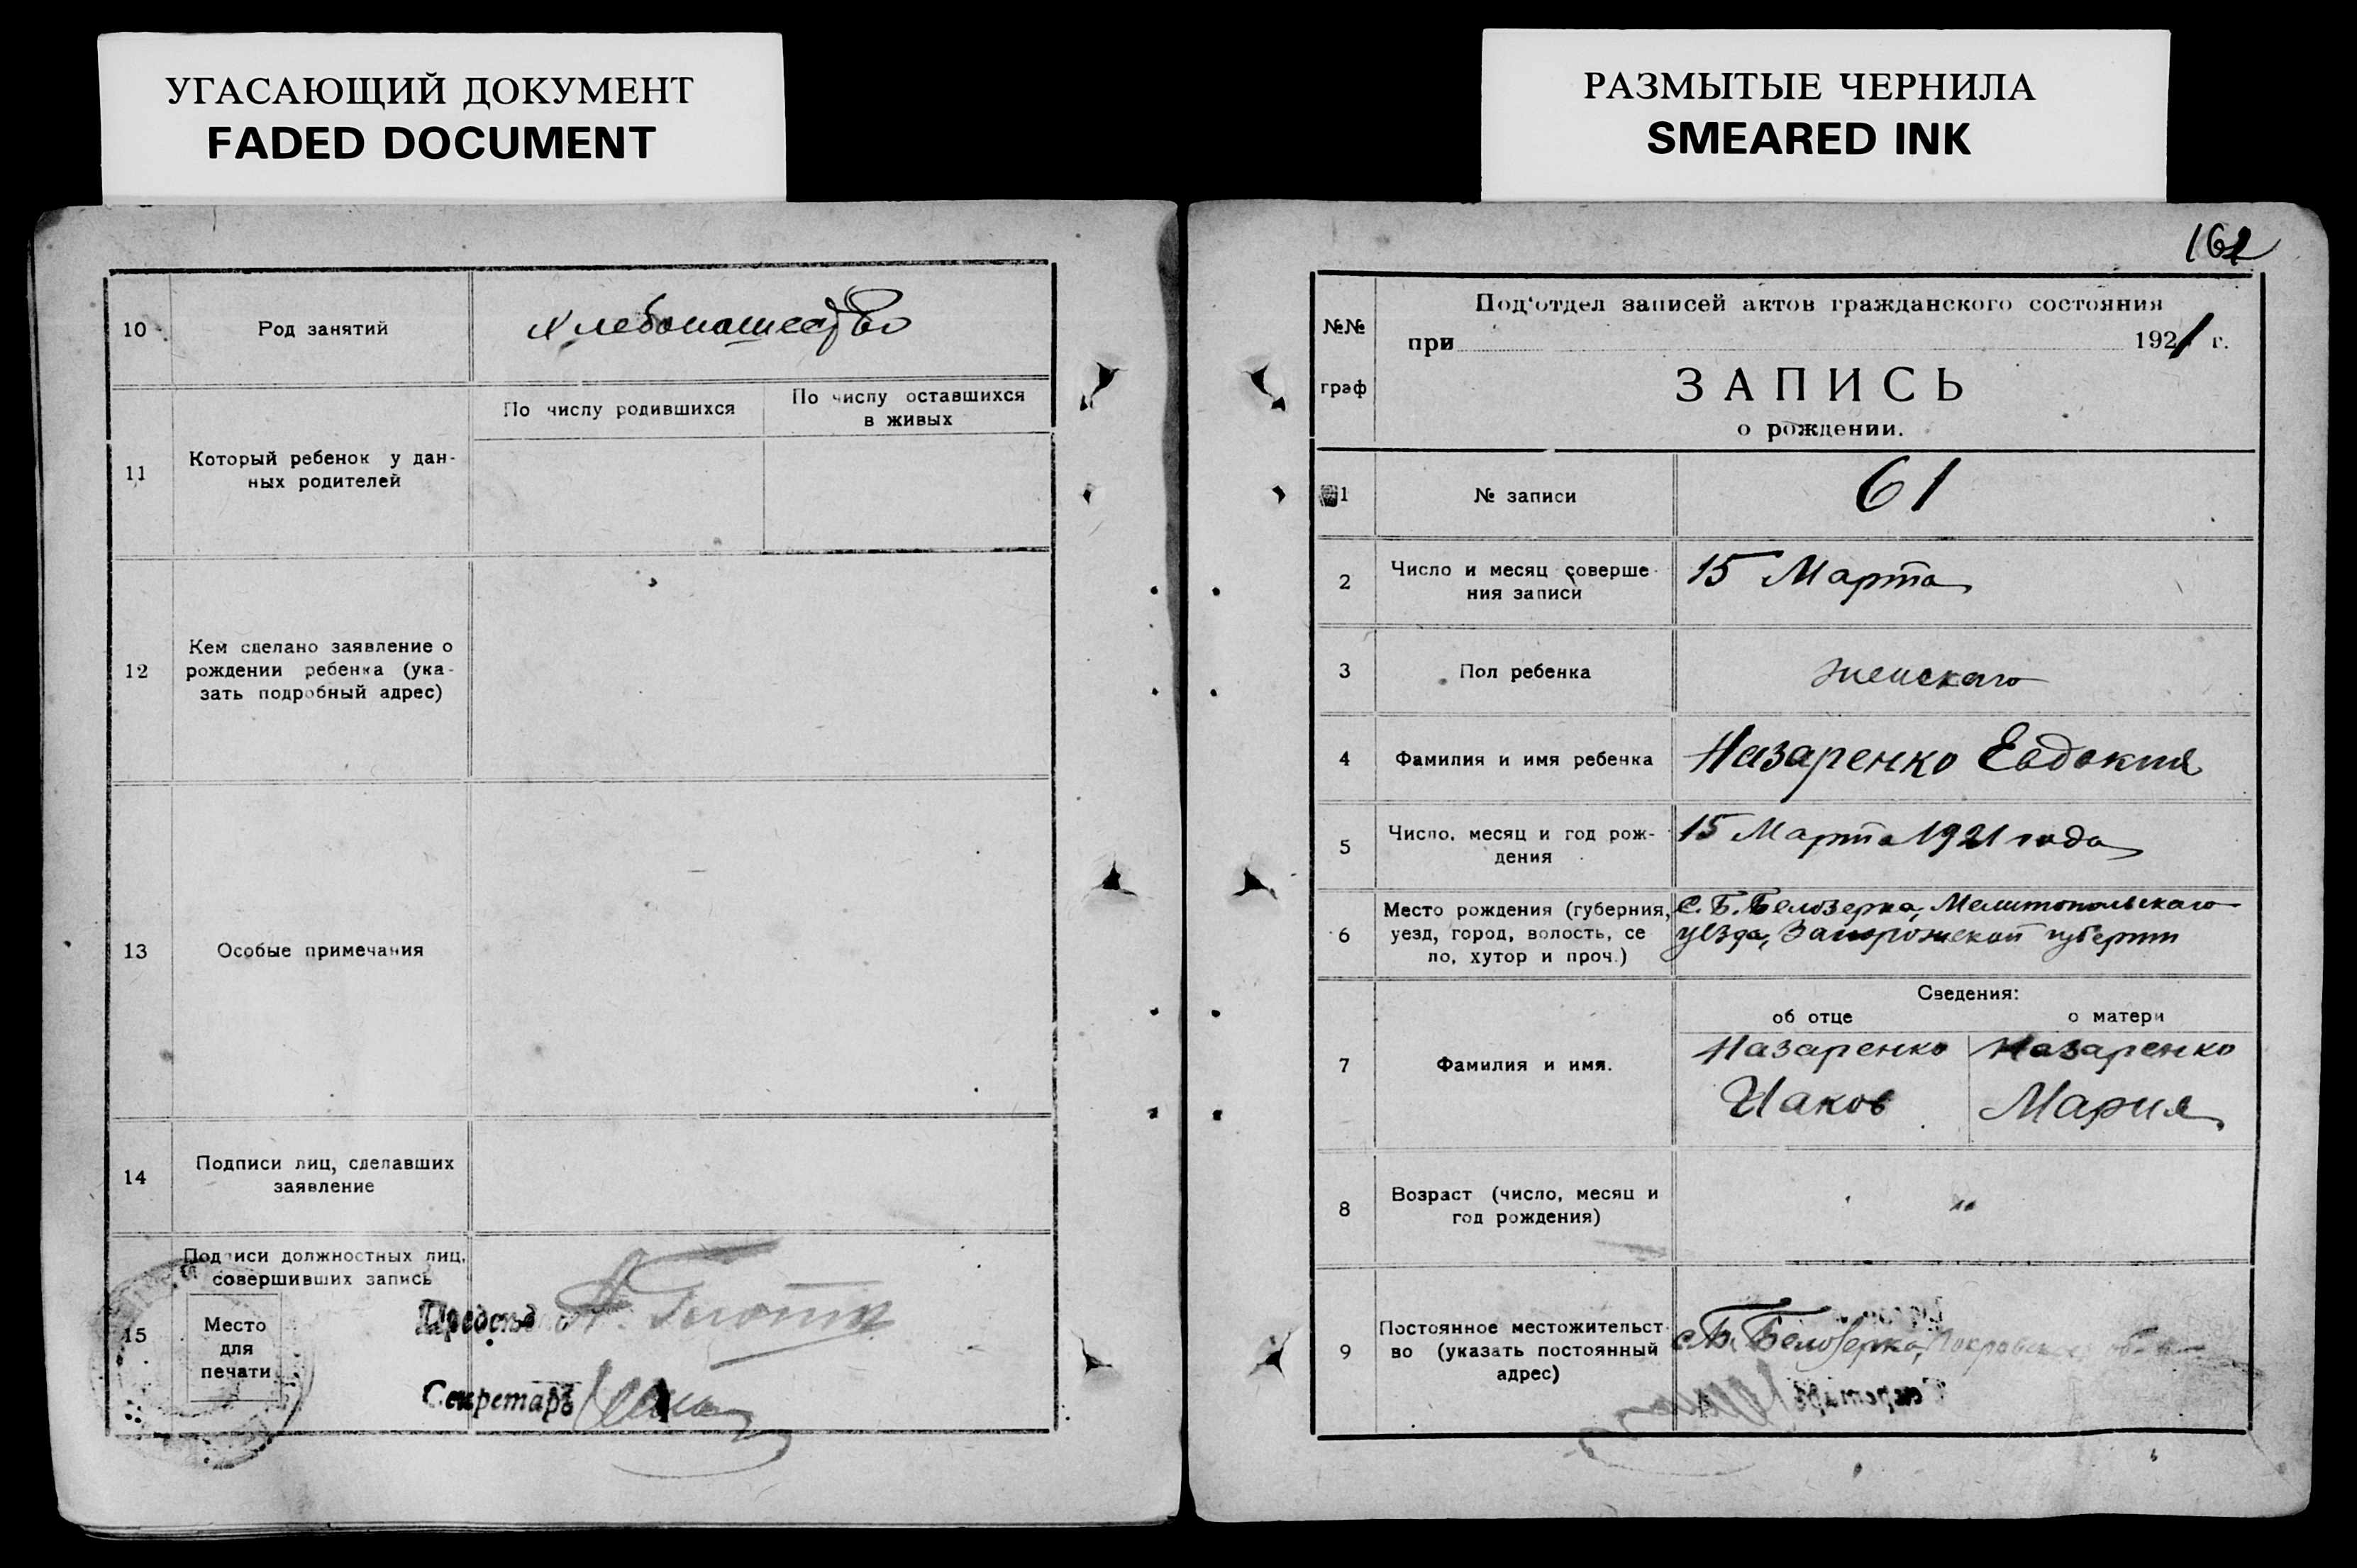 УГАСАЮЩИЙ ДОКУМЕНТ
FADED DOCUMENT
10
Род занятий
Хлебопашество
11
Который ребенок у дан-
ных родителей
По числу родившихся
По числу оставшихся
в живых
12
Кем сделано заявление о
рождении ребенка (ука-
зать подробный адрес)
13
Особые примечания
14
Подписи лиц, сделавших
заявление
15
Подписи должностных лиц,
совершивших запись
Место
для
печати
Председ
Секретарь
РАЗМЫТЫЕ ЧЕРНИЛА
SMEARED INK
№№
граф
Под'отдел записей актов гражданского состояния
при 1921 г.
ЗАПИСЬ
о рождении.
1
№ записи
61
2
Число и месяц соверше-
ния записи
15 Марта
3
Пол ребенка
женскаго
4
Фамилия и имя ребенка
Назаренко Евдокия
5
Число, месяц и год рож-
дения
15 Марта 1921 года
6
Место рождения (губерния,
уезд, город, волость, се
ло, хутор и проч.)
С. Б. Белозерка, Мелитопольскаго
уезда, Запорожской губернии
Сведения:
об отце
о матери
7
Фамилия и имя.
Назаренко
Иаков
Назаренко
Мария
8
Возраст (число, месяц и
год рождения)
9
Постоянное местожительст-
во (указать постоянный
адрес)
с. Б. Белозерка,